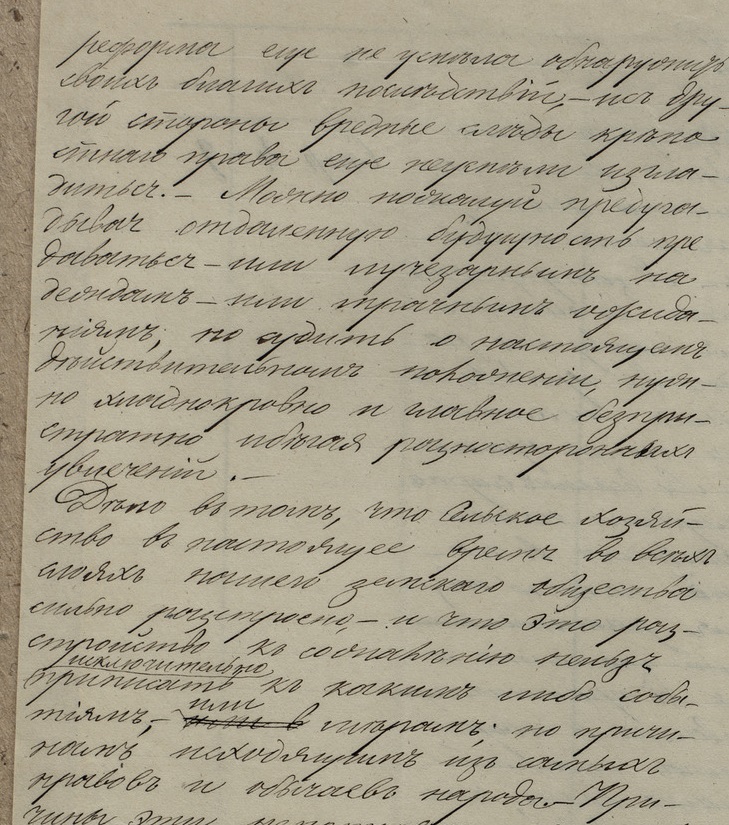 реформа еще не успѣла обнаружить
своихъ благихъ послѣдствій, – и съ дру-
гой стороны вредные слѣды крѣпо
стнаго права еще неуспѣли изгла-
диться. – Можно пожалуй предуга-
дывая отдаленную будущность пре
даваться – или лучезарнымъ на
деждамъ – или мрачнымъ ожида-
ніямъ; но судить о настоящемъ
дѣйствительномъ положеніи, нуж-
но хладнокровно и главное безпри-
страстно избѣгая разностороннихъ
увлеченій. –
Дѣло въ томъ, что Сельское хозяй-
ство въ настоящее время во всѣхъ
слояхъ нашего земскаго общества
сильно разстроено, – и что это раз-
стройство къ сожалѣнію нельзя
исключительно
приписать къ какимъ либо собы-
или
тіямъ, – мѣрамъ; но причи-
намъ исходящимъ изъ самыхъ
нравовъ и обычаевъ народа – При-
чины эти